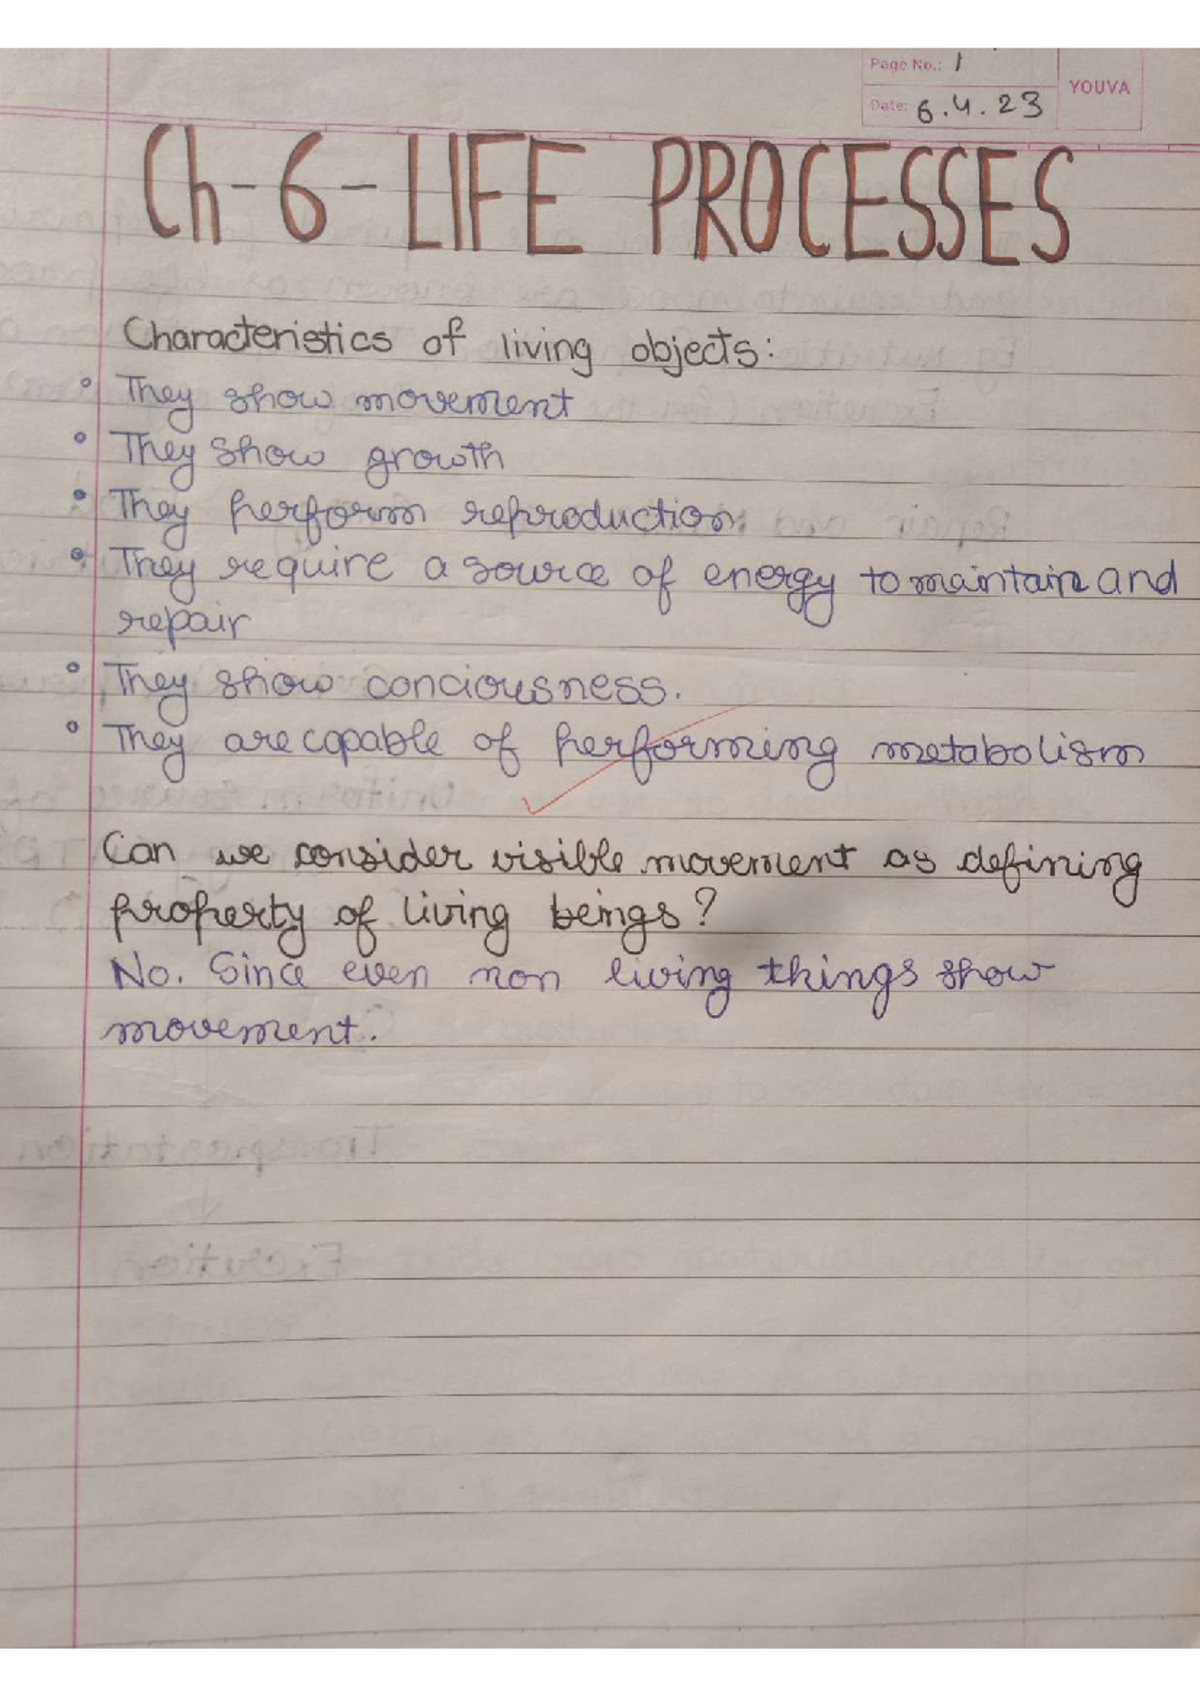 Page No.: 1
YOUVA
Date: 6.4.23
Ch-6-LIFE PROCESSES
Characteristics of living objects:
• They show movement
• They show growth
• They perform reproduction
• They require a source of energy to maintain and
repair
• They show conciousness.
• They are capable of performing metabolism
Can we consider visible movement as defining
property of living beings?
No. Since even non living things show
movement.